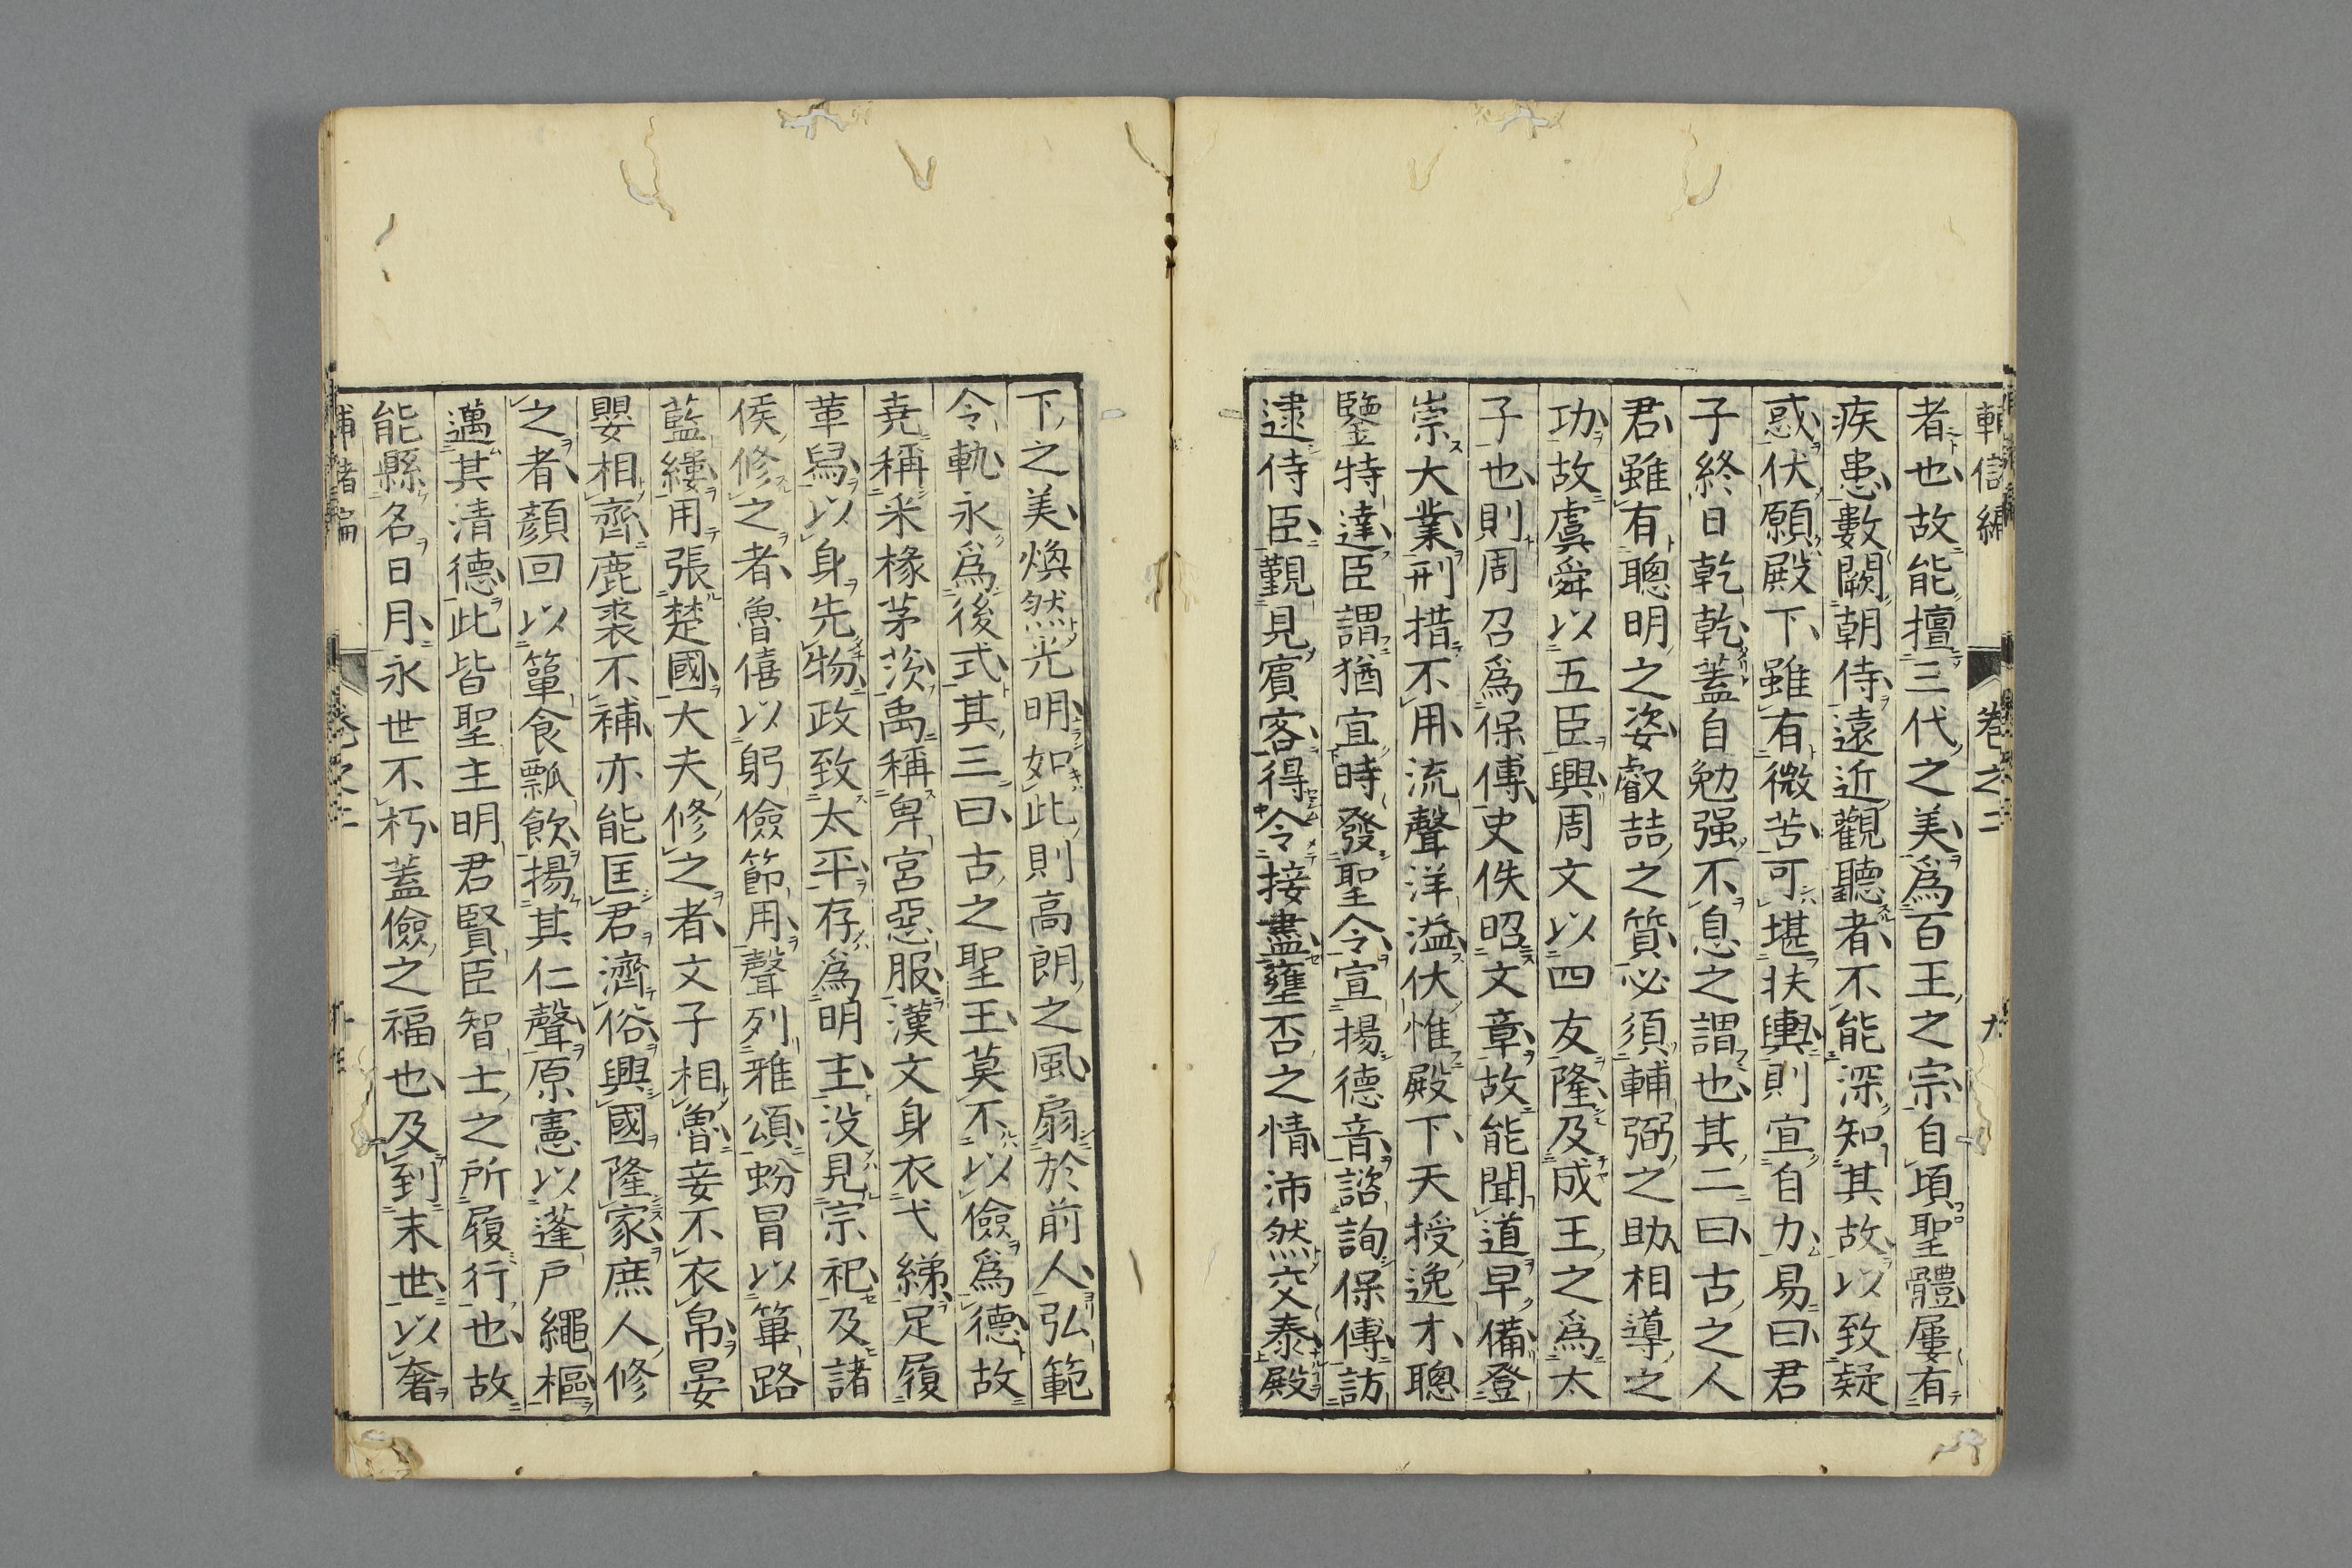 卷之二
者也故能擅三代之美爲百王之宗自頃聖體屢有
疾患數闕朝侍遠近觀聽者不能深知其故以致疑
惑伏願殿下雖有微苦可堪扶輿則宜自力易曰君
子終日乾乾蓋自勉强不息之謂也其二曰古之人
君雖有聰明之姿叡喆之質必須輔弼之助相導之
功故虞舜以五臣興周文以四友隆及成王之爲太
子也則周召爲保傅史佚昭文章故能聞道早備登
崇大業刑措不用流聲洋溢伏惟殿下天授逸才聰
鑒特達臣謂猶宜時發聖令宣揚德音諮詢保傅訪
逮侍臣覲見賓客得令接盡壅否之情沛然交泰殿
下之美煥然光明如此則高朗之風扇於前人弘範
令軌永爲後式其三曰古之聖王莫不以儉爲德故
堯稱采椽茅茨禹稱卑宮惡服漢文身衣弋綈足履
革舄以身先物政致太平存爲明主没見宗祀及諸
侯修之者魯僖以躬儉節用聲列雅頌蚡冒以篳路
藍縷用張楚國大夫修之者文子相魯妾不衣帛晏
嬰相齊鹿裘不補亦能匡君濟俗興國隆家庶人修
之者顏回以簞食瓢飲揚其仁聲原憲以蓬戶繩樞
邁其清德此皆聖主明君賢臣智士之所履行也故
能縣名日月永世不朽蓋儉之福也及到末世以奢